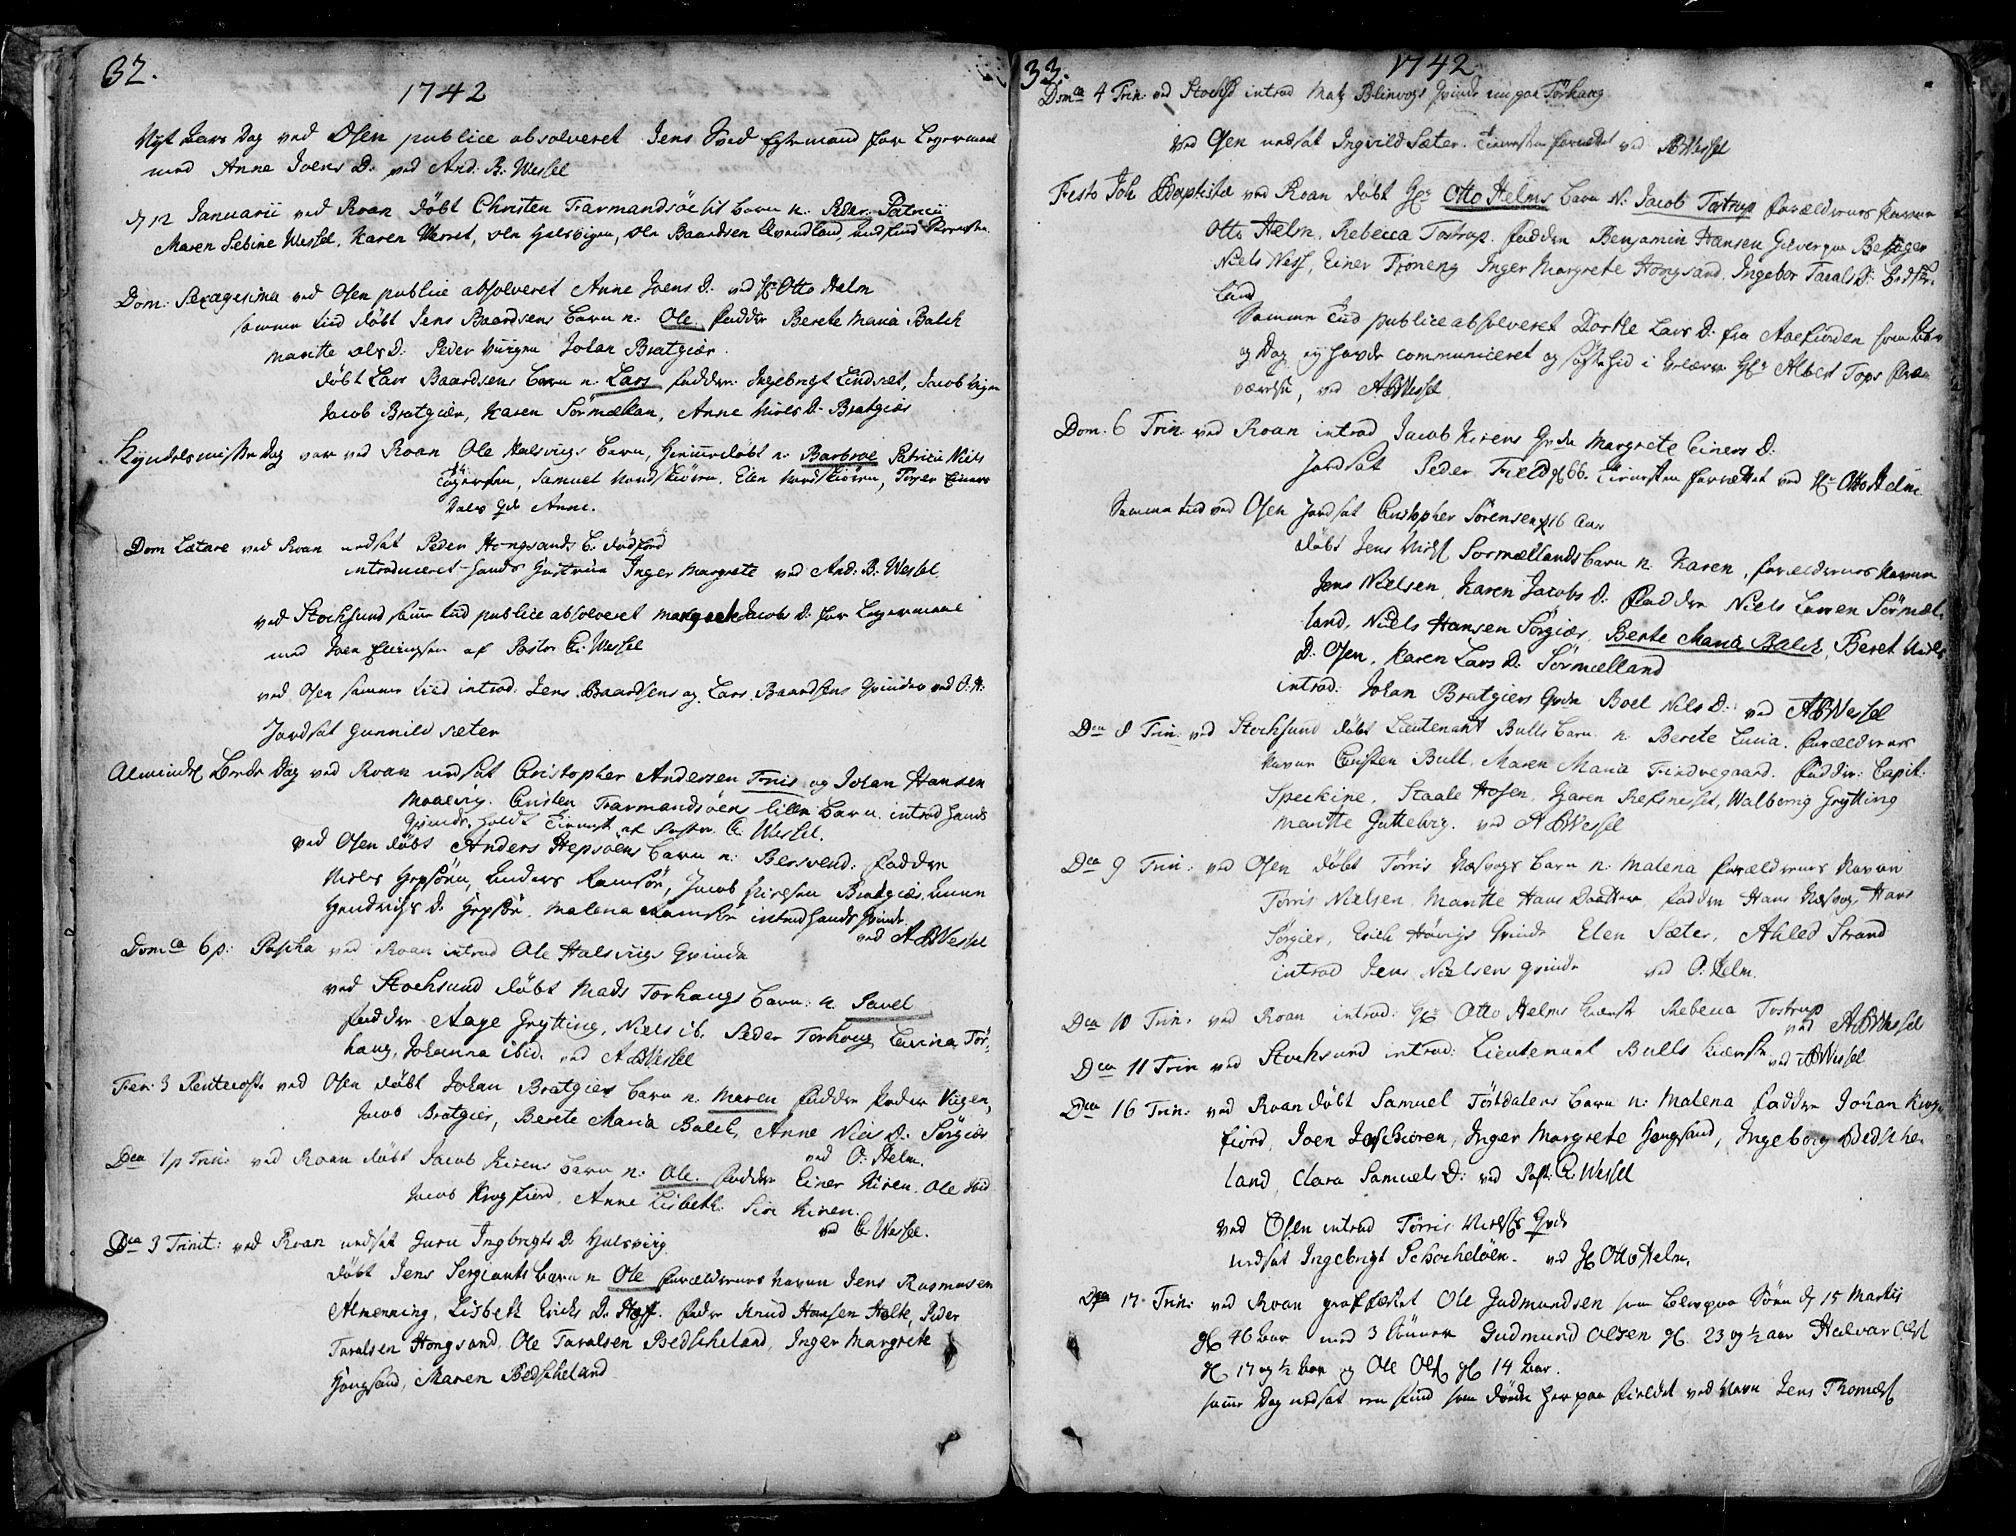 32.
1742
Nyt Aars Dag ved Osen publice absolveret Jens Egtemand for Legermaal
med Anne Joens D. ved And. B. Wessel
d 12 Januarii ved Roan døbt Christen Tarmandsøens barn n: Peder. Patrini
Maren Sebine Wessel, Karen Werret, Ole Halsvigen, Ole Baardsen
Dom: Sexagesima ved Osen publice absolveret Anne Joens D. ved Hr Otto Helm
samme tiid døbt Jens Baardsens barn n: Ole. Faddre Berete Maria Balch
Maritte Ols D. Peder Viigen Johan Bratgier.
døbt Lars Baardsens barn n: Lars faddre: Ingebrigt Lindset, Jacob Vigen
Jacob Bratgier, Karen Sørmælan, Anne Niels D. Bratgier
Kyndelsmisse dag var ved Roan Ole Halsvigs barn, hiemmedøbt n: Barbroe Patrini Niels
Samuel Nordskiøren, Elen Nordskiøren, Torger Einers
Anne.
Dom Lætare ved Roan nedsat Peder Hongsands b. dødfød
introduceret hands Hustrue Inger Margrete ved And: B: Wessel
ved Stochsund samme tiid publice absolveret Margrete Jacobs D: for Legermaal
med Joen Ellingsen af Pastor C. Wessel
ved Osen samme tiid introd: Jens Baardsens og Lars Baardsens Qvinder ved O: H:
Jordsat Gunnild Sæter
Almindel Beede Dag ved Roan nedsat Christopher Andersen Friis og Johan Hansen
Christen Tarmandsøens lille barn. introd hands
Qvinde, holdt Tienest af Pastor C. Wessel.
ved Osen døbt Anders Hepsøens barn n: Bersvend: Faddre
Niels Hepsøen, Anders Ramsøe, Jacob Bratgier,
Hendrichs D. Hepsøe. Malena Ramsøe introd hands Qvinde.
ved ABWessel
Domca 6 p: Pascha ved Roan introd Ole Halsviigs Qvinde
ved Stochsund døbt Mads Torhaugs barn: n. Povel
Faddre Aage Grytting, Niels ib. Peder Torhoug Tør-
haug, Johanna ibid. ved ABWessel
Fer: 3 Pentecost: ved Osen døbt Johan Bratgiers barn n. Maren Faddre Peder Viigen,
Jacob Bratgier, Berete Maria Balch, Anne Niels D: Sørgier
ved O: Helm.
Dca 1 p Trin: ved Roan døbt Jacob Kirens barn n: Ole. Faddre Einer Kiren. Ole ibid
Jacob Krogfiord, Anne Lisbeth. Siri Kiren.
ved C. Wessel.
Dca 3 Trinit: ved Roan nedsat Guru Ingbrigts D. Halsviig
døbt Jens Sergiants barn n Ole forældrenes navn Jens Rasmusen
Almenning, Lisbeth Erichs D. Hoff. fadre Knud Hansen Holte, Peder
Taralsen Hongsand, Ole Taralsen Bedscheland, Inger Margrete
Hongsand, Maren Bedscheland.
33.
1742
Domca 4 Trin: ved Stochsd introd Matz Blinvogs Qvinde Tørhaug
ved Osen nedsat Ingvild Sæter. Tienesten forrettet ved ABWessel
Festo Joh Baptistæ ved Roan døbt Hr Otto Helms barn N: Jacob Tostrup forældrenes Navne
Otto Helm, Rebecca Tostrup. faddre Benjamin Hansen
Niels Ness, Einer Frøneng Inger Margrete Hongsand. Ingebor Tarals D: Bedsche-
land
Samme Tiid publice absolveret Dorthe Lars D. fra Aaefiorden
og Dag ey havde communiceret og i Hr Albert Tops
værelse, ved ABWessel
Dom. 6 Trin. ved Roan introd Jacob Kirens Qvde Margrete Einers D.
Jordsat Peder Field gl 66. Tienesten forrettet ved Hr Otto Helm
Samme tiid ved Osen Jordsat Christopher Sørensen gl 16 Aar
døbt Jens Niels Sørmællands barn n. Karen, forældrenes Navne
Jens Nielsen, Karen Jacobs D. Faddre Niels Larsen Sørmæl-
land, Niels Hansen Sørgier, Berte Maria Balch, Beret Niels
D. Osen, Karen Lars D. Sørmælland
introd: Johan Bratgiers Qvde Boel Niels D: ved ABWessel
Dca 8 Trin: ved Stochsund døbt Lieutenant Bulls barn n: Berete Lucia. forældrenes
Navne Christen Bull, Maren Maria Findvegaard. Faddre: Capit:
Speckine, Staale Hosen, Karen Refsneset, Walborrig Grytting
Maritte Gutteborg. ved ABWessel
Dca 9 Trin: ved Osen døbt Tørris Næsvogs barn n: Malena forældrenes Navn
Tørris Nielsen, Maritte Hans Daatter, faddre Hans Næsvog, Hans
Sørgier, Erich Høvigs Qvinde Elen Sæter, Ahled Strand
introd Jens Nielsens Qvinde ved O. Helm.
Dca 10 Trin: ved Roan introd: Hr Otto Helms kieriste Rebecca Tostrup
ved ABWessel
Dca 11 Trin ved Stochsund introd: Lieutenant Bulls kieriste ved ABWessel
Dca 16 Trin: ved Roan døbt Samuel Tostdalens barn n: Malena Faddre Johan Krog-
fiord, Joen Hofschioren, Inger Margrete Hongsand, Ingeborg Bedsche-
land, Clara Samuels D: ved Past: C. Wessel
ved Osen introd Tørris Nielses Qvde
nedsat Ingebrigt Schochdøen. ved Hr Otto Helm.
Dca 17 Trin: ved Roan graffæstet Ole Gudmundsen som blev paa Søen d 15 Martii
gl 46 Aar med 3 Sønner Gudmund Olsen gl. 23 og ½ aar Halvar Ols
gl 17 og ½ Aar og Ole Ols gl 14 Aar.
samme Dag nedsat en som døde her paa fieldet ved Navn Jens Thomes